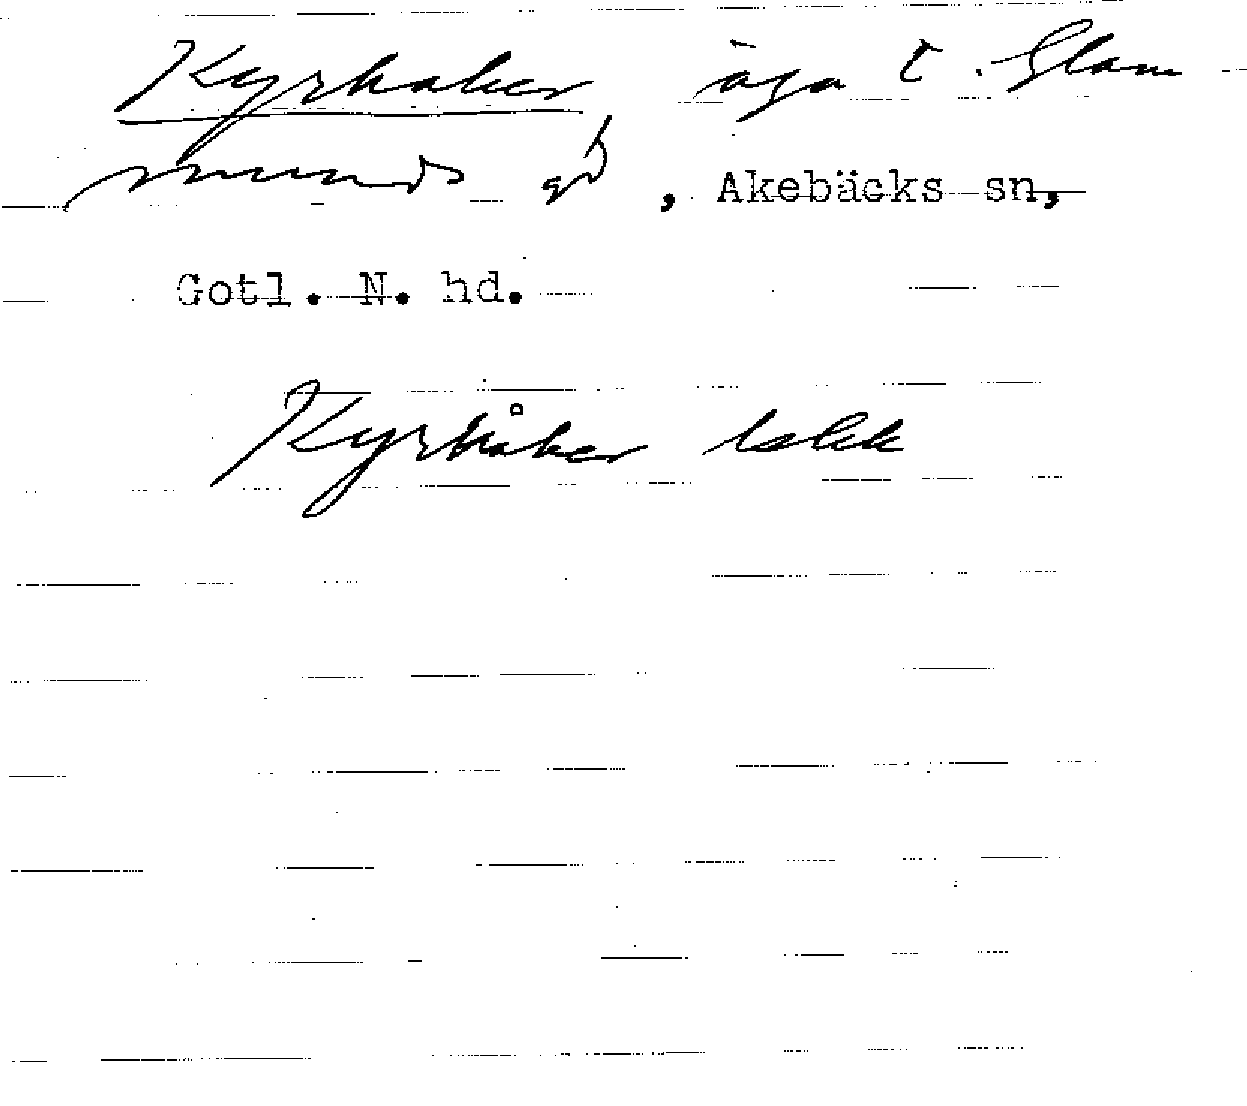 Kyrkaker äga t. Glam
munds gd, Akebäcks sn,
Gotl. N. hd.
Kyrkåker